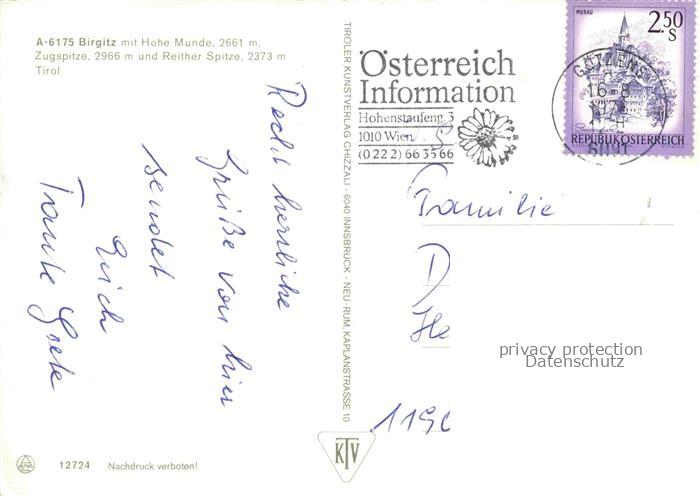 A-6175 Birgitz mit Hohe Munde, 2661 m,
Zugspitze, 2966 m und Reither Spitze, 2373 m
Tirol
Recht herzliche
Grüße von hier
sendet
Euch
Tante Grete
12724 Nachdruck verboten!
TIROLER KUNSTVERLAG CHIZZALI · 6040 INNSBRUCK - NEU-RUM, KAPLANSTRASSE 10
KTV
Österreich
Information
Hohenstaufeng. 3
1010 Wien
(0 22 2) 66 35 66
MURAU
2.50
S
REPUBLIK ÖSTERREICH
GÖTZENS
16-8
6091
Familie
D
He
privacy protection
Datenschutz